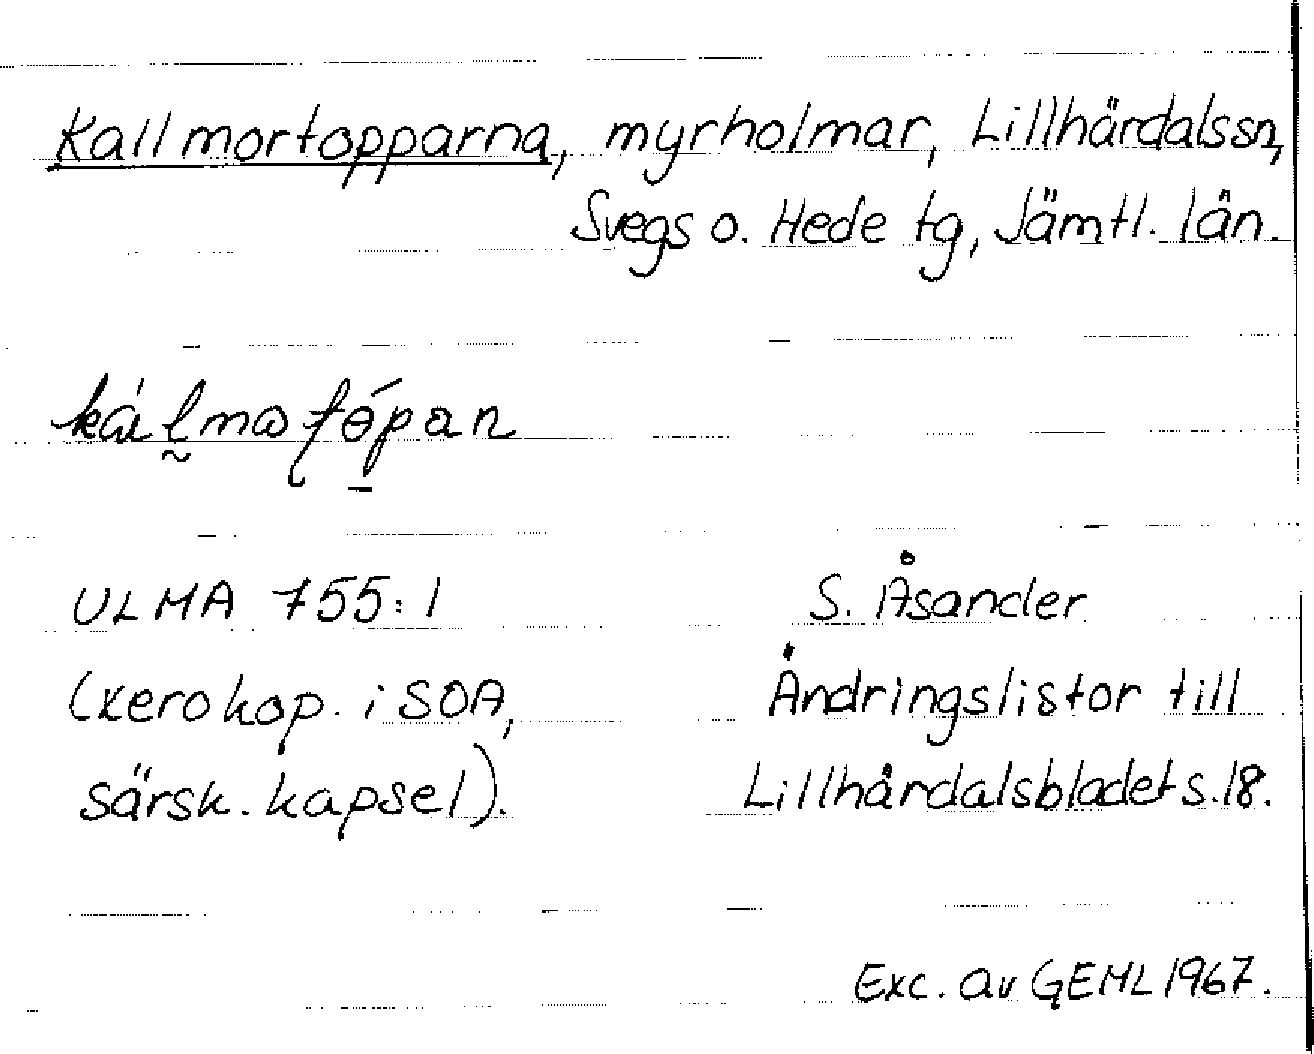 Kallmortopparna, myrholmar, Lillhärdals sn,
Svegs o. Hede tg, Jämtl. län.
ULMA 755:1
S. Åsander
(xerokop. i SOA,
Ändringslistor till
särsk. kapsel).
Lillhärdalsbladet s. 18.
Exc. av GEML 1967.